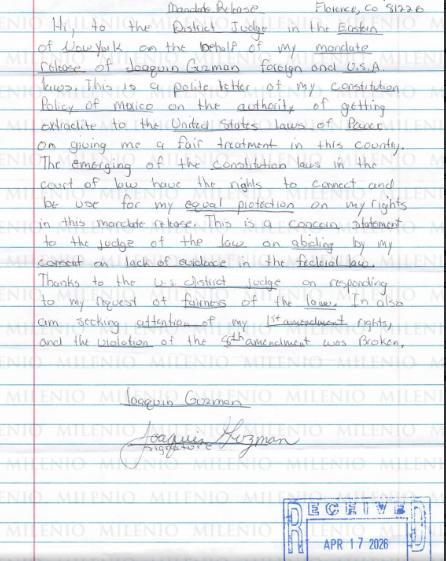 Mandate Release Florence, Co 81226
Hi, to the District Judge in the Eastern
of New York on the behalf of my mandate
release of Joaquin Guzman foreign and U.S.A
laws. This is a polite letter of my constitution
Policy of Mexico on the authority of getting
extradite to the United States laws of Power
on giving me a fair treatment in this country.
The emerging of the constitution laws in the
court of law have the rights to connect and
be use for my equal protection on my rights
in this mandate release. This is a concern statement
to the judge of the law on abiding by my
consent on lack of evidence in the federal law.
Thanks to the U.S district Judge on responding
to my request of fairness of the law. In also
am seeking attention of my 1st amendment rights,
and the violation of the 8th amendment was Broken.
Joaquin Guzman
Joaquin Guzman
Signature
RECEIVED
APR 17 2026
MILENIO